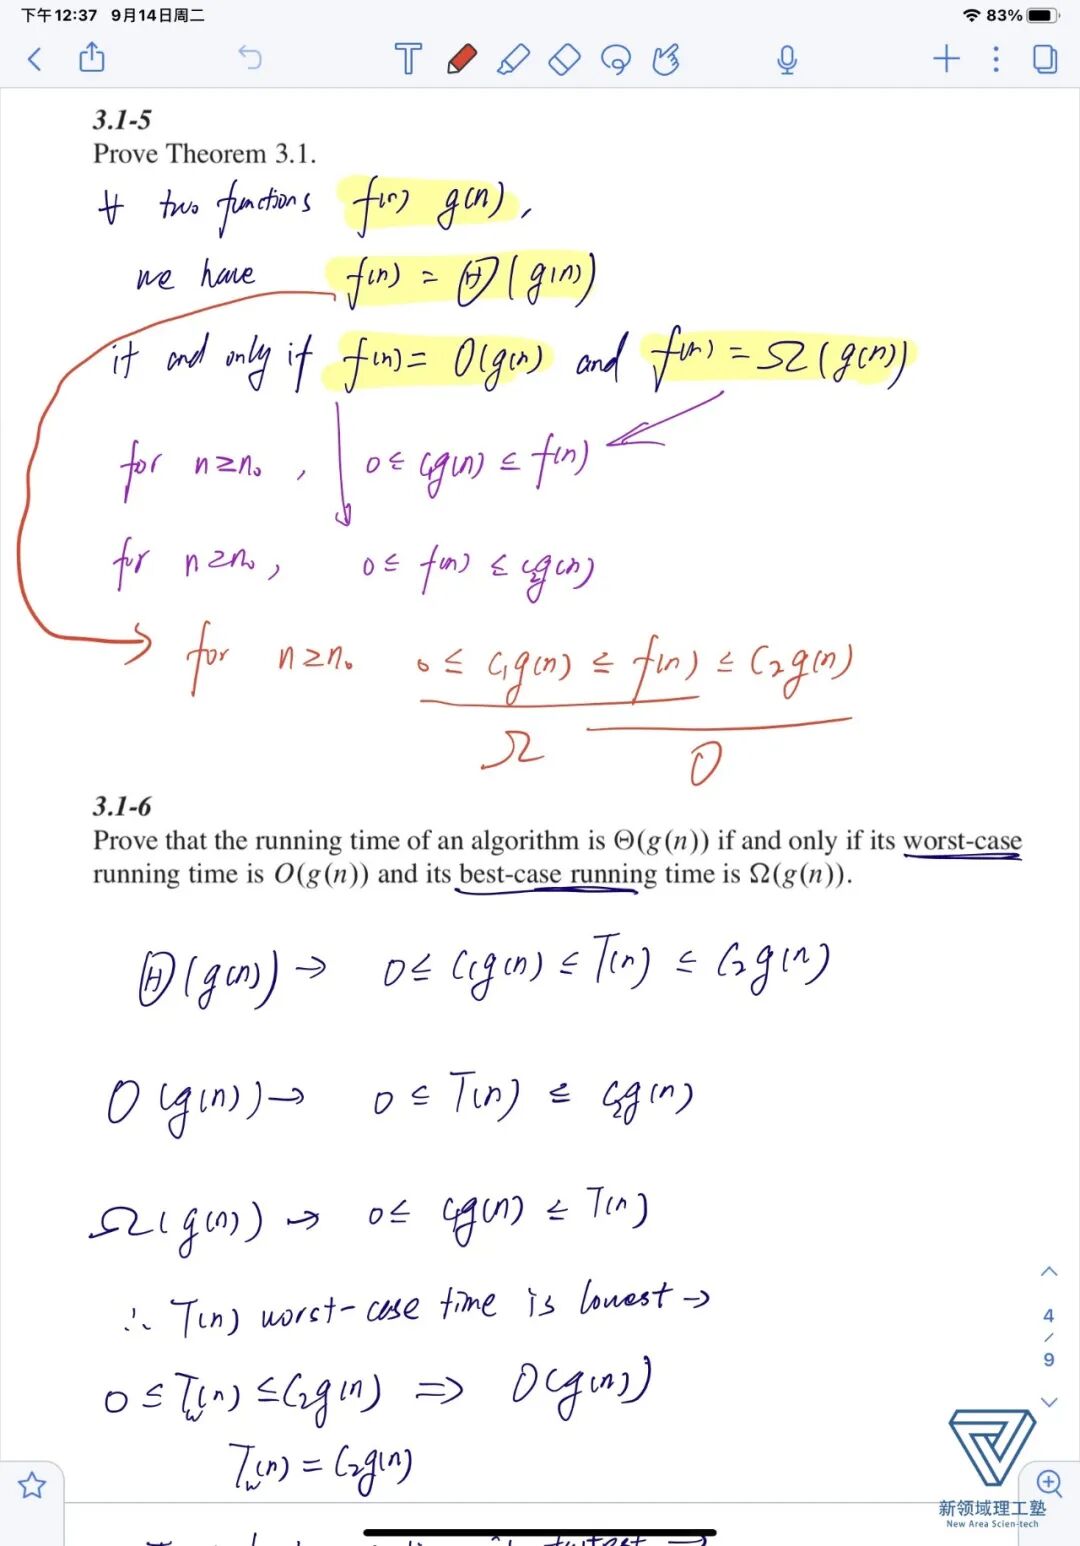 下午12:37 9月14日周二
83%
T
3.1-5
Prove Theorem 3.1.
∀ two functions f(n) g(n),
we have f(n) = Θ(g(n))
if and only if f(n) = O(g(n) and f(n) = Ω(g(n))
for n≥n₀, 0≤ c₁g(n) ≤ f(n)
for n≥n₀, 0≤ f(n) ≤ c₂g(n)
for n≥n₀ 0≤ c₁g(n) ≤ f(n) ≤ c₂g(n)
Ω O
3.1-6
Prove that the running time of an algorithm is Θ(g(n)) if and only if its worst-case
running time is O(g(n)) and its best-case running time is Ω(g(n)).
Θ(g(n)) → 0≤ c₁g(n) ≤ T(n) ≤ c₂g(n)
O(g(n)) → 0≤ T(n) ≤ c₂g(n)
Ω(g(n)) → 0≤ c₁g(n) ≤ T(n)
∴ T(n) worst-case time is lowest →
0≤ Tw(n) ≤ c₂g(n) ⇒ O(g(n))
Tw(n) = c₂g(n)
4
/
9
新领域理工塾
New Area Scien-tech